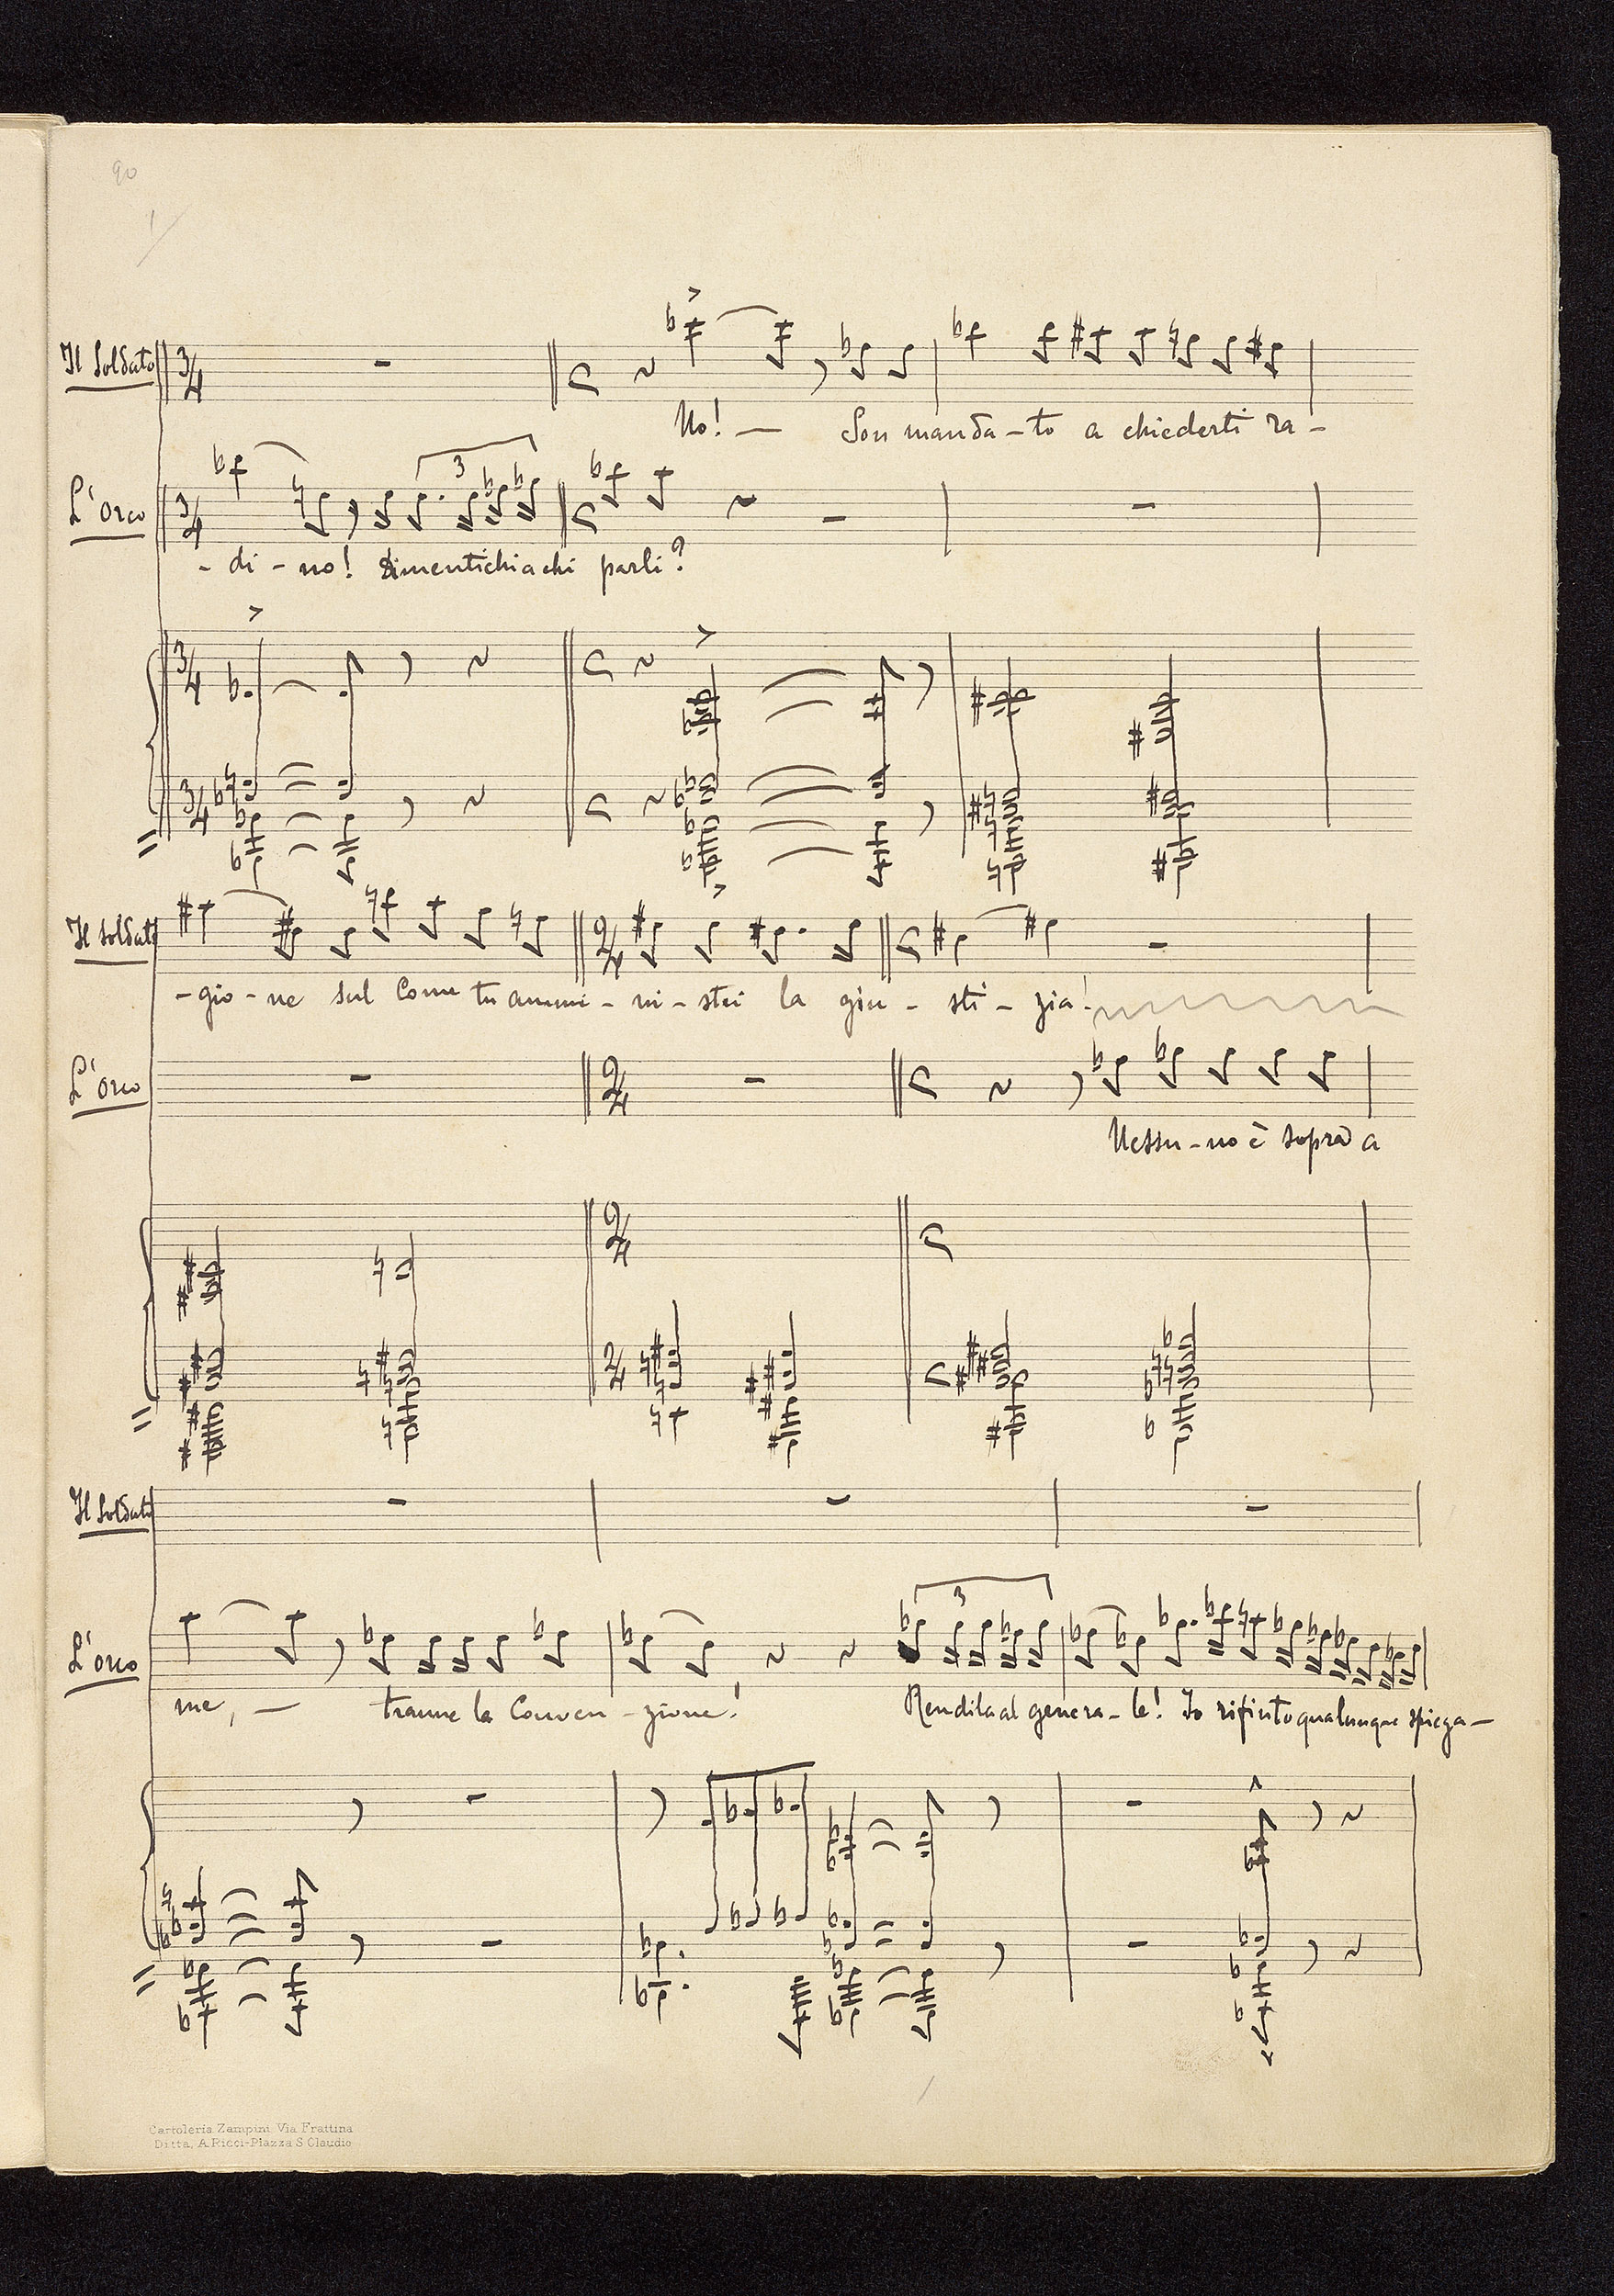 90
1
Il Soldato
3/4
No! — Son manda-to a chiederti ra-
3
L'Orco
3/4
- di - no! Dimentichi a chi parli?
3/4
3/4
Il Soldato
2/4
-gio - ne sul Come tu ammi - ni - stri la giu - sti - zia!
L'Orco
2/4
Nessu - no è sopra a
2/4
2/4
Il Soldato
3
L'Orco
me, — tranne la Conven - zione! Rendila al genera - le! Io rifiuto qualunque spiega —
Cartoleria Zampini Via Frattina
Ditta, A. Ricci-Piazza S. Claudio